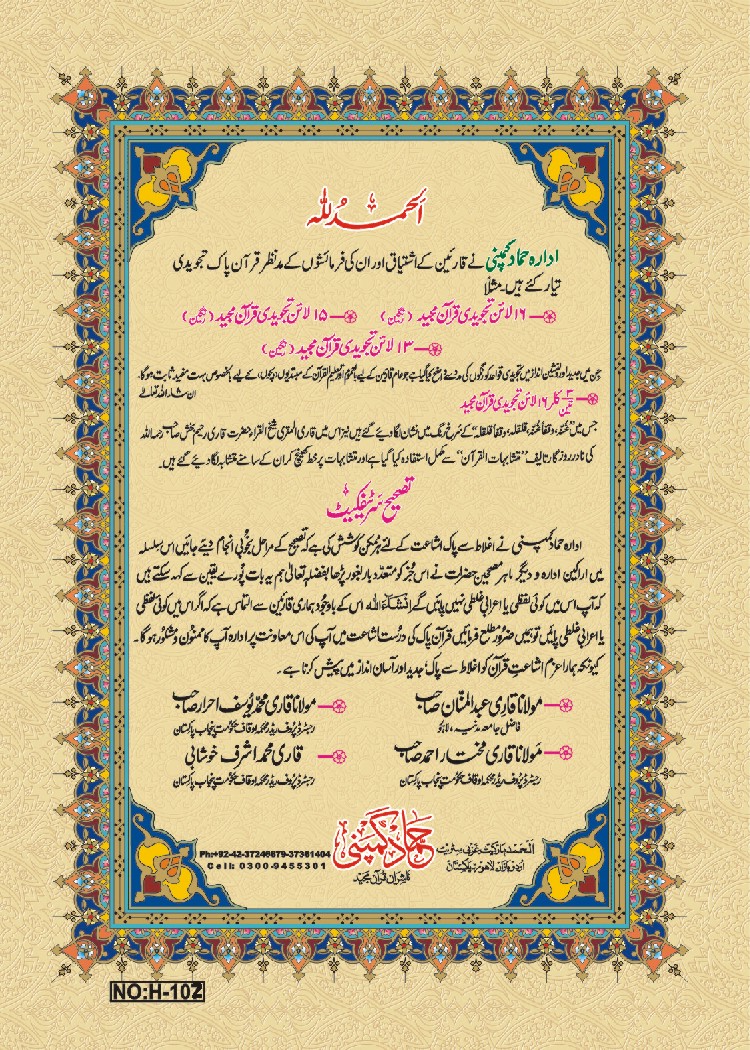 الحمد للہ
ادارہ حماد کمپنی نے قارئین کے اشتیاق اور ان کی فرمائشوں کے مدنظر قرآن پاک تجویدی
تیار کئے ہیں۔ مثلاً
۱۶ لائن تجویدی قرآن مجید (رنگین) ۱۵ لائن تجویدی قرآن مجید (رنگین)
۱۳ لائن تجویدی قرآن مجید (رنگین)
جن میں جدید اور دلنشین انداز میں تجویدی قواعد کو رنگوں کی مدد سے واضح کیا گیا ہے جو عام قارئین کے لیے بالعموم اور تعلیم القرآن کے مبتدیوں، بچوں، کے لیے بالخصوص بہت مفید ثابت ہوگا۔
ان شاء اللہ تعالیٰ
۳ تین کلر ۱۶ لائن تجویدی قرآن مجید
جس میں "غنہ، وقفاً غنہ، قلقلہ، وقفاً قلقلہ" کے سرخ رنگ میں نشان لگا دیئے گئے ہیں نیز اس میں قاری المقری شیخ القراء حضرت قاری رحیم بخش صاحب رحمہ اللہ
کی نادر روزگار تالیف "متشابہات القرآن" سے مکمل استفادہ کیا گیا ہے اور متشابہات پر خط کھینچ کر ان کے سامنے متشابہ لگا دیئے گئے ہیں۔
تصحیح سرٹیفکیٹ
ادارہ حماد کمپنی نے اغلاط سے پاک اشاعت کے لئے ہر ممکن کوشش کی ہے کہ تصحیح کے مراحل بخوبی انجام دیئے جائیں اس سلسلہ
میں اراکین ادارہ و دیگر ماہر مصححین حضرات نے اس کو متعدد بار بغور پڑھا بفضلہ تعالیٰ ہم یہ بات پورے یقین سے کہہ سکتے ہیں
کہ آپ اس میں کوئی لفظی یا اعرابی غلطی نہیں پائیں گے اِنْشَآءَ اللہ اس کے باوجود ہماری قارئین سے التماس ہے کہ اگر اس میں کوئی لفظی
یا اعرابی غلطی پائیں تو ہمیں ضرور مطلع فرمائیں قرآن پاک کی درست اشاعت میں آپ کی اس معاونت پر ادارہ آپ کا ممنون و مشکور ہوگا۔
کیونکہ ہمارا عزم اشاعتِ قرآن کو اغلاط سے پاک، جدید اور آسان انداز میں پیش کرنا ہے۔
مولانا قاری عبد المنان صاحب
فاضل جامعہ مدنیہ، لاہور
مولانا قاری محمد یوسف احرار صاحب
رجسٹرڈ پروف ریڈر محکمہ اوقاف حکومت پنجاب پاکستان
مولانا قاری مختار احمد صاحب
رجسٹرڈ پروف ریڈر محکمہ اوقاف حکومت پنجاب پاکستان
قاری محمد اشرف خوشابی
رجسٹرڈ پروف ریڈر محکمہ اوقاف حکومت پنجاب پاکستان
الحمد مارکیٹ غزنی سٹریٹ
اردو بازار لاہور پاکستان
حماد کمپنی
ناشران قرآن مجید
Ph:+92-42-37246879-37361404
Cell: 0300-9455301
NO:H-102